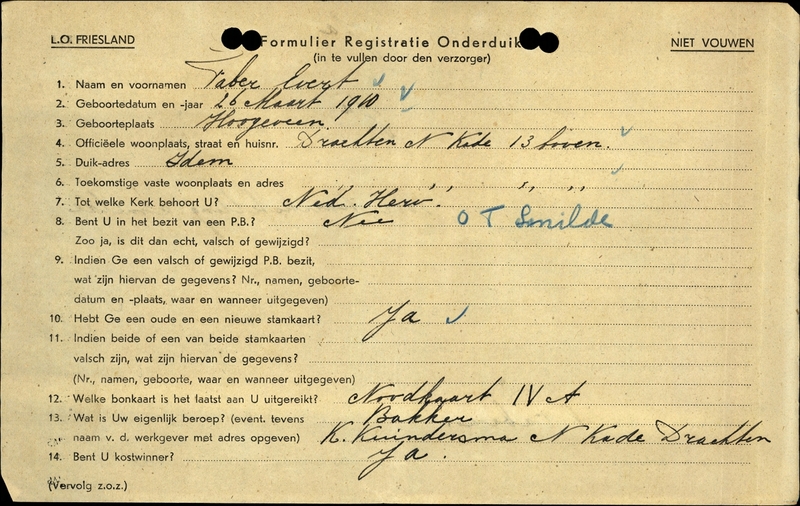 L.O. FRIESLAND
Formulier Registratie Onderduik
NIET VOUWEN
(in te vullen door den verzorger)
1. Naam en voornamen Faber Evert
2. Geboortedatum en -jaar 26 Maart 1910
3. Geboorteplaats Hoogeveen
4. Officiëele woonplaats, straat en huisnr. Drachten N Kade 13 boven.
5. Duik-adres Idem
6. Toekomstige vaste woonplaats en adres ,, ,, ,, ,,
7. Tot welke Kerk behoort U? Ned. Herv.
8. Bent U in het bezit van een P.B.? Nee O T Smilde
Zoo ja, is dit dan echt, valsch of gewijzigd?
9. Indien Ge een valsch of gewijzigd P.B. bezit,
wat zijn hiervan de gegevens? Nr., namen, geboorte-
datum en -plaats, waar en wanneer uitgegeven)
10. Hebt Ge een oude en een nieuwe stamkaart? Ja
11. Indien beide of een van beide stamkaarten
valsch zijn, wat zijn hiervan de gegevens?
(Nr., namen, geboorte, waar en wanneer uitgegeven)
12. Welke bonkaart is het laatst aan U uitgereikt? Noodkaart IV A
13. Wat is Uw eigenlijk beroep? (event. tevens Bakker
naam v. d. werkgever met adres opgeven) K. Kuindersma N Kade Drachten
14. Bent U kostwinner? Ja.
(Vervolg z.o.z.)